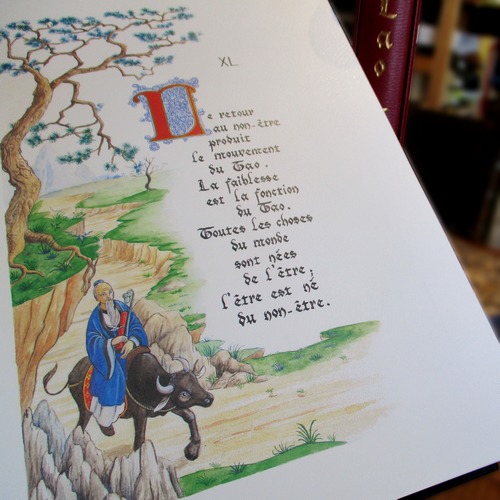 XL
Le retour
au non-être
produit
le mouvement
du Tao.
La faiblesse
est la fonction
du Tao.
Toutes les choses
du monde
sont nées
de l'être;
l'être est né
du non-être.
Lao